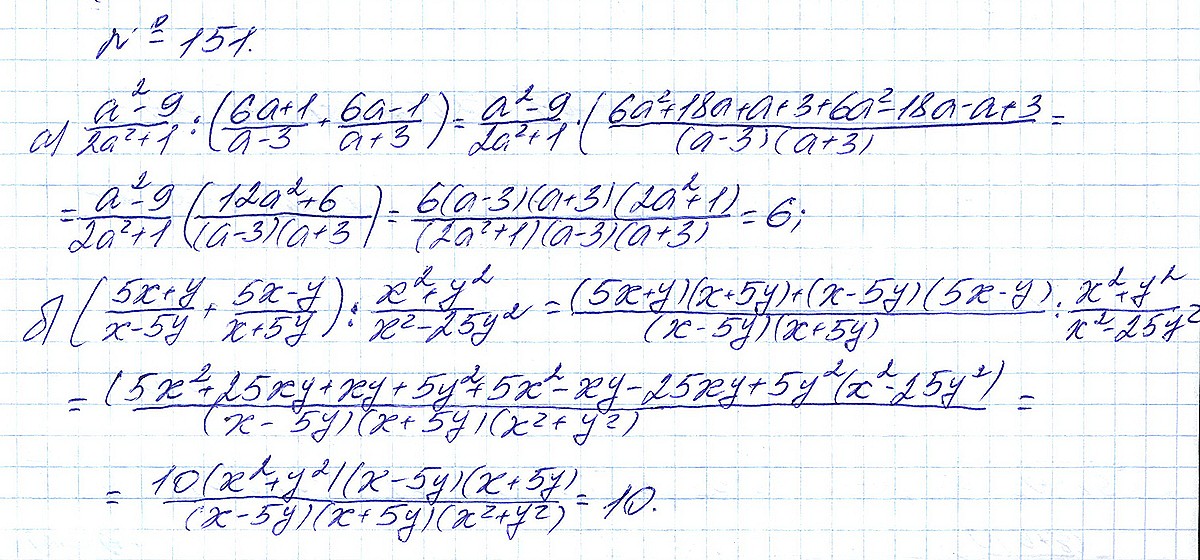 № 151.
а) (a²-9)/(2a²+1) : ((6a+1)/(a-3) + (6a-1)/(a+3)) = (a²-9)/(2a²+1) · ((6a²+18a+a+3+6a²-18a-a+3)/((a-3)(a+3)) =
= (a²-9)/(2a²+1) ((12a²+6)/((a-3)(a+3)) = (6(a-3)(a+3)(2a²+1))/((2a²+1)(a-3)(a+3)) = 6;
б) ((5x+y)/(x-5y) + (5x-y)/(x+5y)) : (x²+y²)/(x²-25y²) = ((5x+y)(x+5y)+(x-5y)(5x-y))/((x-5y)(x+5y)) : (x²+y²)/(x²-25y²)
= ((5x²+25xy+xy+5y²+5x²-xy-25xy+5y²(x²-25y²))/((x-5y)(x+5y)(x²+y²)) =
= (10(x²+y²)(x-5y)(x+5y))/((x-5y)(x+5y)(x²+y²)) = 10.